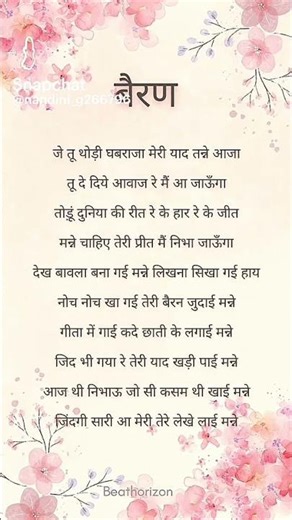 Snapchat
बैरण
जे तू थोड़ी घबराजा मेरी याद तन्ने आजा
तू दे दिये आवाज रे मैं आ जाऊँगा
तोडूं दुनिया की रीत रे के हार रे के जीत
मन्ने चाहिए तेरी प्रीत मैं निभा जाऊँगा
देख बावला बना गई मन्ने लिखना सिखा गई हाय
नोच नोच खा गई तेरी बैरन जुदाई मन्ने
गीता में गाई कदे छाती के लगाई मन्ने
जिद भी गया रे तेरी याद खड़ी पाई मन्ने
आज थी निभाऊ जो सी कसम थी खाई मन्ने
जिंदगी सारी आ मेरी तेरे लेखे लाई मन्ने
Beathorizon